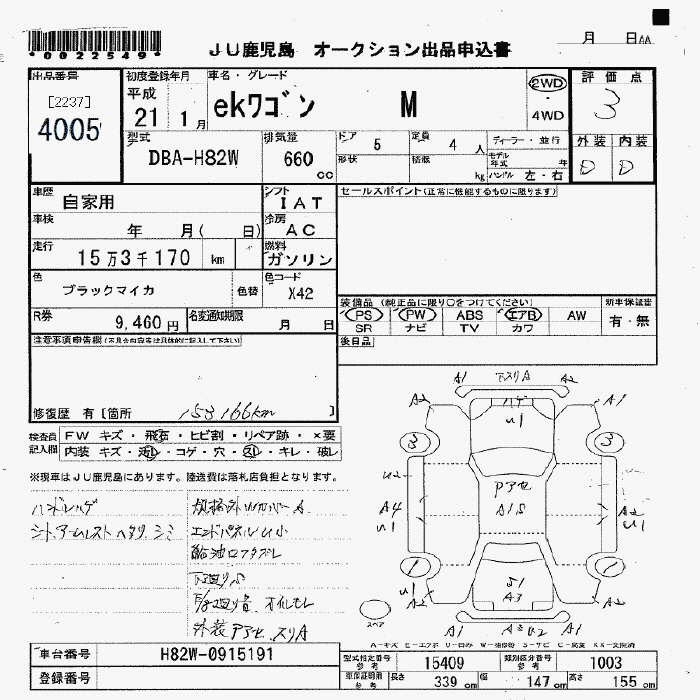 *0022549*
JU鹿児島 オークション出品申込書
月 日AA
出品番号 初度登録年月 車名・グレード 評価点
[2237] 平成 ekワゴン M 2WD・4WD 3
4005 21 1月
型式 排気量 ドア 5 定員 4 人 ディーラー・並行 外装 内装
DBA-H82W 660 cc 形状 積載 kg モデル年式 年 ハンドル 左・右 D D
車歴 自家用 シフト IAT セールスポイント(正常に機能するものに限ります)
車検 年 月( 日) 冷房 AC
走行 15万3千170 km 燃料 ガソリン
色 ブラックマイカ 色替 色コード X42
装備品(純正品に限り○をつけてください) 新車保証書
PS PW ABS エアB AW 有・無
SR ナビ TV カワ
R券 9,460円 名変通知期限 月 日
後日品
注意事項申告欄(不具合内容等は具体的に記入して下さい)
修復歴 有[箇所 153166km ]
検査員記入欄 FW キズ・飛石・ヒビ割・リペア跡・×要
内装 キズ・汚レ・コゲ・穴・スレ・キレ・破レ
※現車はJU鹿児島にあります。陸送費は落札店負担となります。
ハンドルハゲ
エンドパネルU小
下廻りS
A1 下スリA A2
A2 ハゲ A1
U1
3 3
U2
A4 Pアセ A2
U1 A1S U1
1 1
S1
U1 A3
A2 A2
スペア
A1 A1
A-キズ
車台番号 H82W-0915191
登録番号
型式指定番号 参考 15409 類別区分番号 参考 1003
長さ 339 cm 幅 147 cm 高さ 155 cm